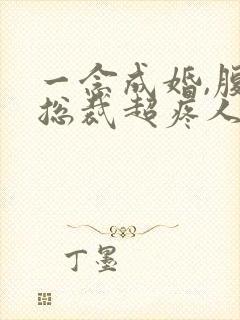 一念成婚,腹
总裁超疼人
丁墨